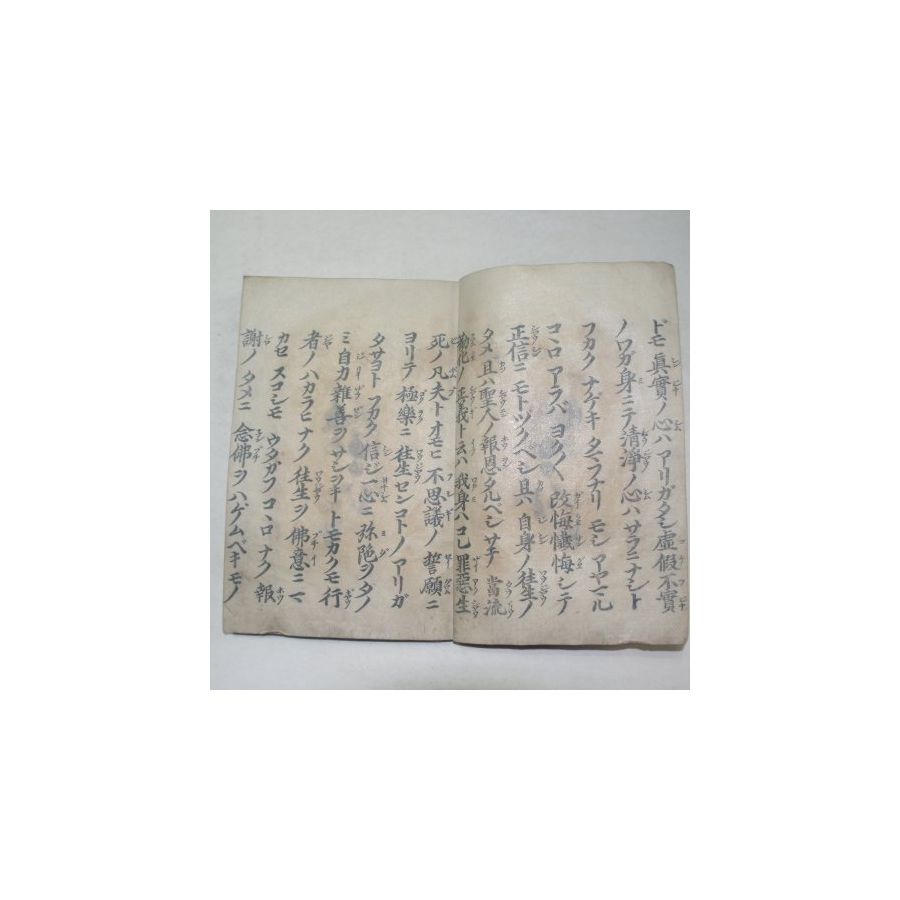 ドモ眞實ノ心ハアリガタシ虛假不實
ノワガ身ニテ清淨ノ心ハサラニナシト
フカクナゲキタマフナリモシアヤマル
コヽロアラバヨク〱改悔懺悔シテ
正信ニモトヅクベシ且ハ自身ノ往生ノ
タメ且ハ聖人ノ報恩タルベシサテ當流
勸化ノ正義ト云ハ我身ハコレ罪惡生
死ノ凡夫トオモヒ不思議ノ誓願ニ
ヨリテ極樂ニ往生センコトノアリガ
タサヨトフカク信ジ一心ニ弥陁ヲタノ
ミ自力雜善ヲサシヲキトモカクモ行
者ノハカラヒナク往生ヲ佛意ニマ
カセスコシモウタガフコヽロナク報
謝ノタメニ念佛ヲハゲムベキモノ